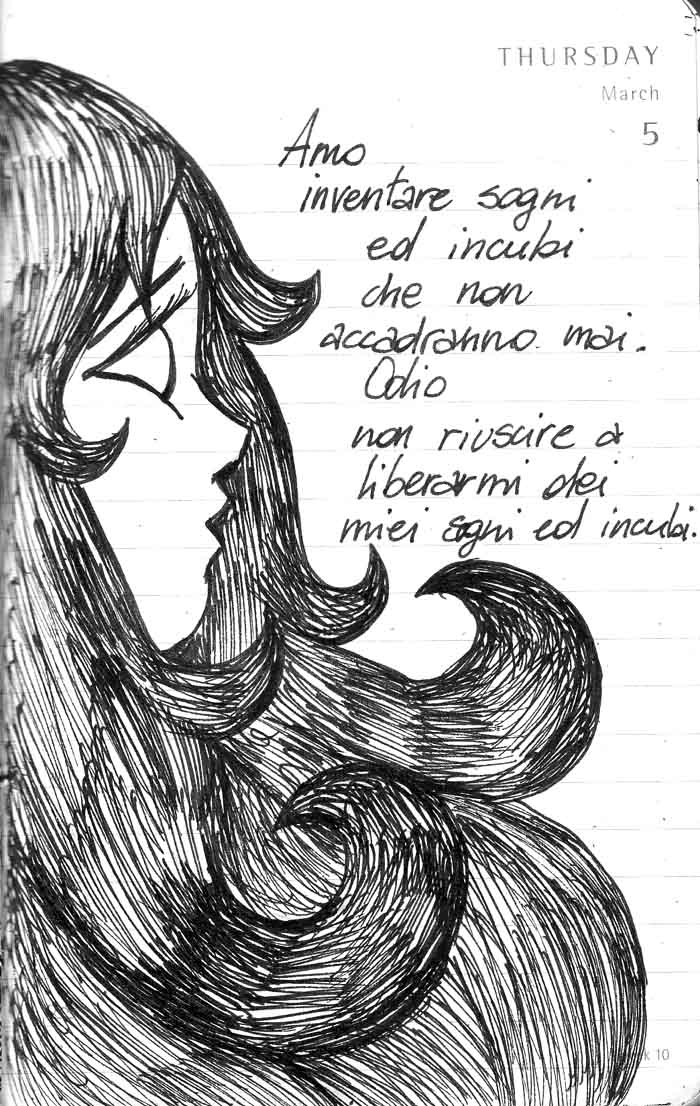 THURSDAY
March
5
Amo
inventare sogni
ed incubi
che non
accadranno mai.
Odio
non riuscire a
liberarmi dei
miei sogni ed incubi.
k 10